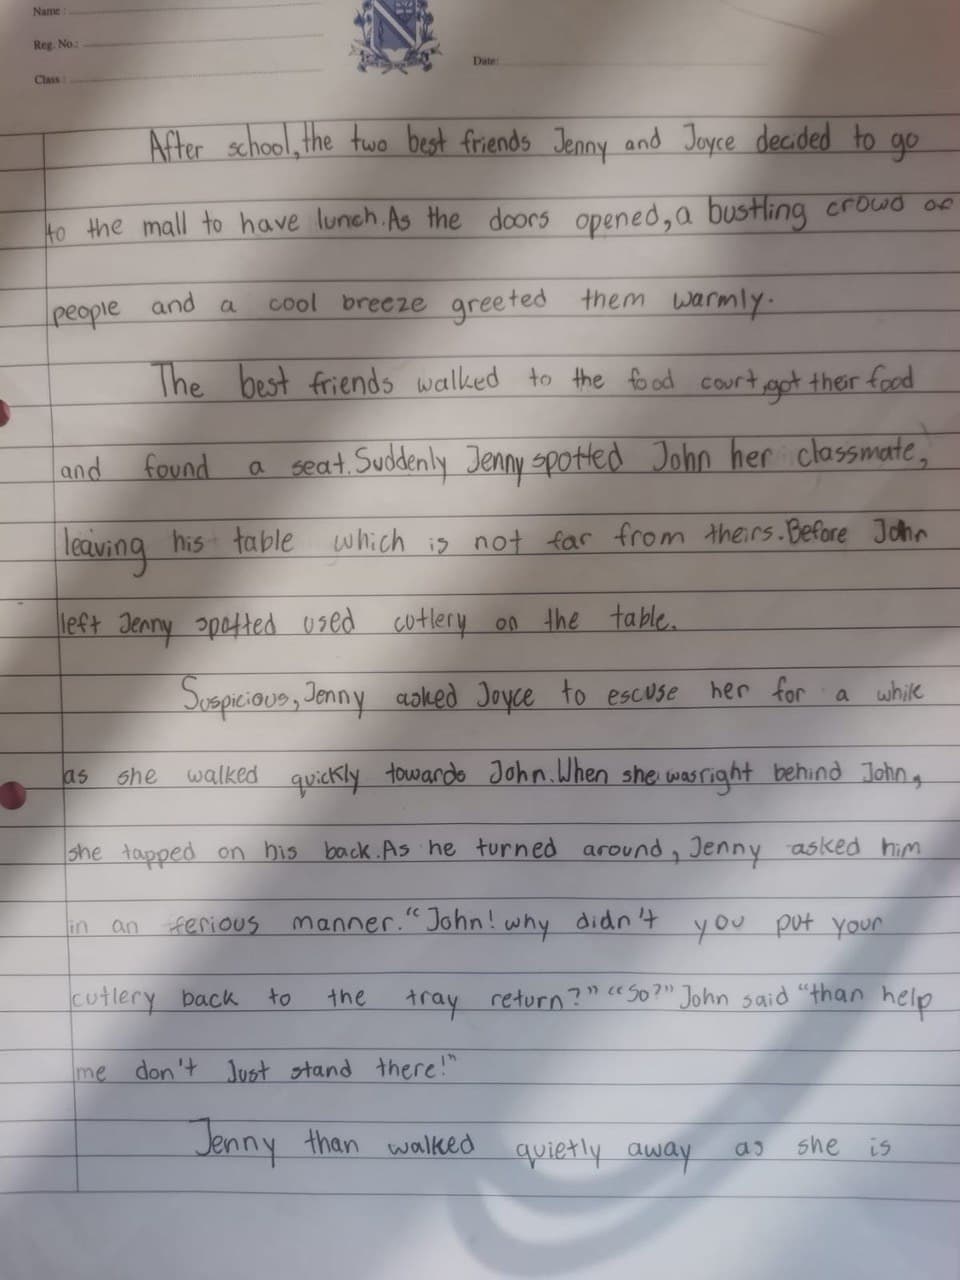 Name :
Reg. No.:
Class :
Date:
After school, the two best friends Jenny and Joyce decided to go
to the mall to have lunch. As the doors opened, a bustling crowd of
people and a cool breeze greeted them warmly.
The best friends walked to the food court, got their food
and found a seat. Suddenly Jenny spotted John her classmate,
leaving his table which is not far from theirs. Before John
left Jenny spotted used cutlery on the table.
Suspicious, Jenny asked Joyce to escuse her for a while
as she walked quickly towards John. When she was right behind John,
she tapped on his back. As he turned around, Jenny asked him
in an ferious manner. "John! why didn't you put your
cutlery back to the tray return?" "So?" John said "than help
me don't Just stand there!"
Jenny than walked quietly away as she is